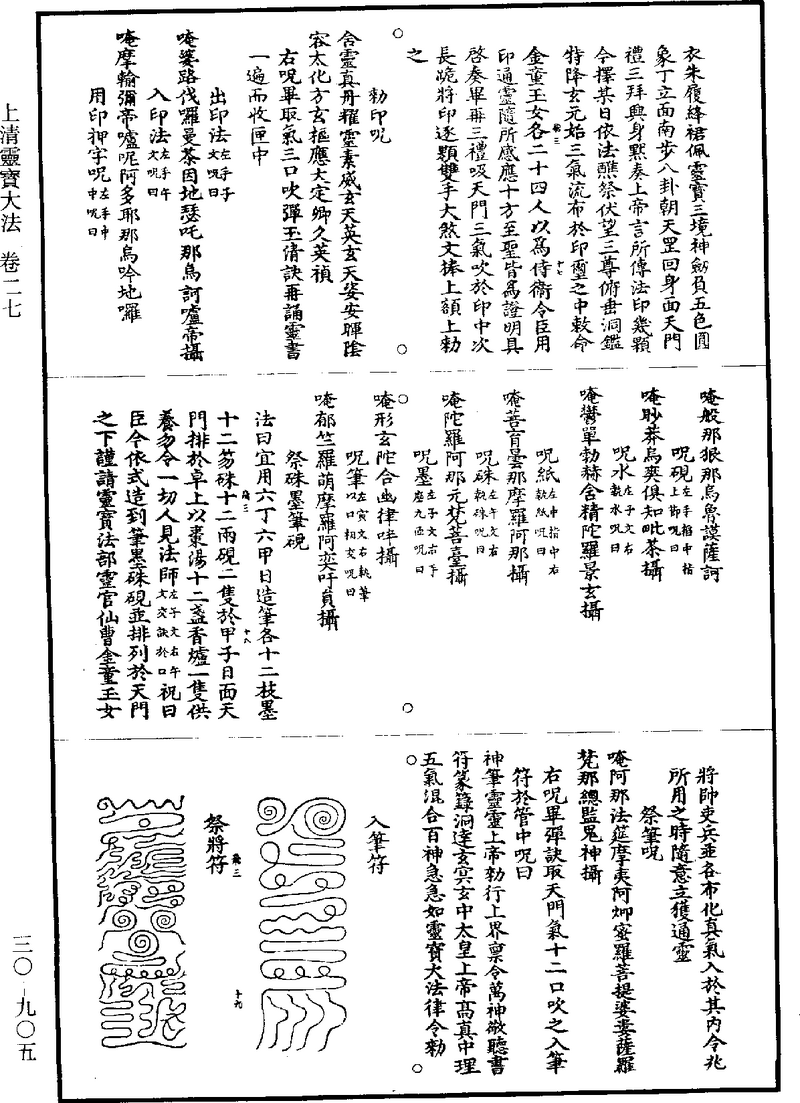 衣朱履絳裙佩靈寶三境神劒負五色圓
象丁立面南步八卦朝天罡回身面天門
禮三拜興身黙奏上帝言所傳法印幾顆
今擇某日依法醮祭伏望三尊俯垂洞鑑
特降玄元始三氣流布於印璽之中敕命
金童玉女各二十四人以爲侍衛令臣用
印通靈隨所感應十方至聖皆爲證明具
啓奏畢再三禮吸天門三氣吹於印中次
長跪將印逐顆雙手大煞文捧上額上勑
之
勑印呪
舍靈真丹糴靈素威玄天英玄天姿安暉陰
容太化方玄樞應大定卿久英禎
右呪畢取氣三口吹彈玉清訣再誦靈書
一遍而收匣中
出印法左手子文呪曰
唵婆路伐囉曼茶因地瑟吒那烏訶嚧帝攝
入印法左手午文呪曰
唵摩輸彌帝嚧呢阿多耶那烏吟地囉
用印押字呪左手中中呪曰
唵般那狠那烏魯謨薩訶
呪硯左手掐中指上節呪曰
唵眇莽烏爽俱知毗茶攝
呪水左子文右執水呪曰
唵欝單勃赫舍精陀羅景玄攝
呪紙左中指中右執紙呪曰
唵菩育曇那摩羅阿那攝
呪硃左午文右執硃呪曰
唵陀羅阿那元梵菩臺攝
呪墨左子文右手
唵形玄陀合幽律吽攝
呪筆左寅文右執筆以口相交呪曰
唵郁竺羅萌摩羅阿奕吁負攝
祭硃墨筆硯
法曰宜用六丁六甲日造筆各十二枝墨
十二笏硃十二兩硯二隻於甲子日面天
門排於卓上以棗湯十二盞香爐一隻供
養勿令一切人見法師左子文右午文交訣於口祝曰
臣今依式造到筆墨硃硯並排列於天門
之下謹請靈寶法部靈官仙曹金童玉女
將帥吏兵並各布化真氣入於其内令兆
所用之時隨意立獲通靈
祭筆呪
唵阿那法莚摩夷阿𤆬密羅菩提婆婁薩羅
梵那總監鬼神攝
右呪畢彈訣取天門氣十二口吹之入筆
符於管中呪曰
神筆靈靈上帝勑行上界禀令萬神敬聽書
符篆籙洞達玄冥玄中太皇上帝髙真中理
五氣混合百神急急如靈寶大法律令勑
入筆符
祭將符
上清靈寶大法 卷二七
三〇-九〇五